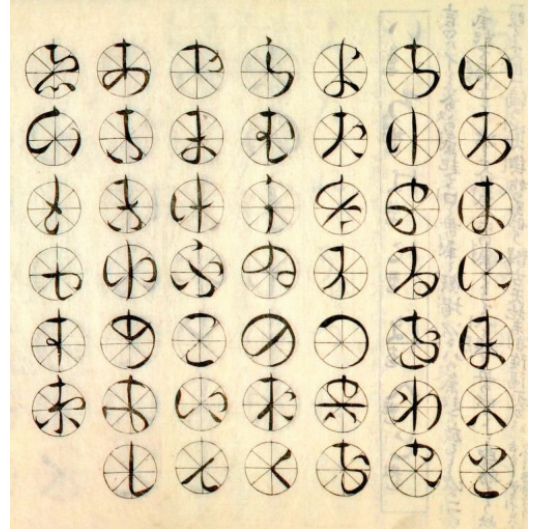 いろはにほへと
ちりぬるをわか
よたれそつねな
らむうゐのおく
やまけふこえて
あさきゆめみし
ゑひもせす